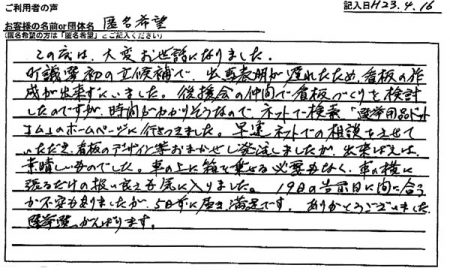 ご利用者の声
記入日H23.4.16
お客様の名前or団体名 匿名希望
(匿名希望の方は「匿名希望」とご記入ください)
この度は、大変お世話になりました。
町議選初の立候補で、出馬表明が遅れたため、看板の作
成が出来ずにいました。後援会の仲間で看板づくりを検討
したのですが、時間がかかりそうなので、ネットで検索「選挙用品ドット
コム」のホームページに行きつきました。早速ネットでの相談をさせて
いただき、看板のデザイン等おまかせし発注しましたが、出来ばえは
素晴しいものでした。車の上に箱を乗せる必要もなく、車の横に
張るだけの扱い良さも気に入りました。19日の告示日に間に合う
か不安もありましたが、5日ずに届き満足です。ありがとうございました。
選挙戦がんばります。